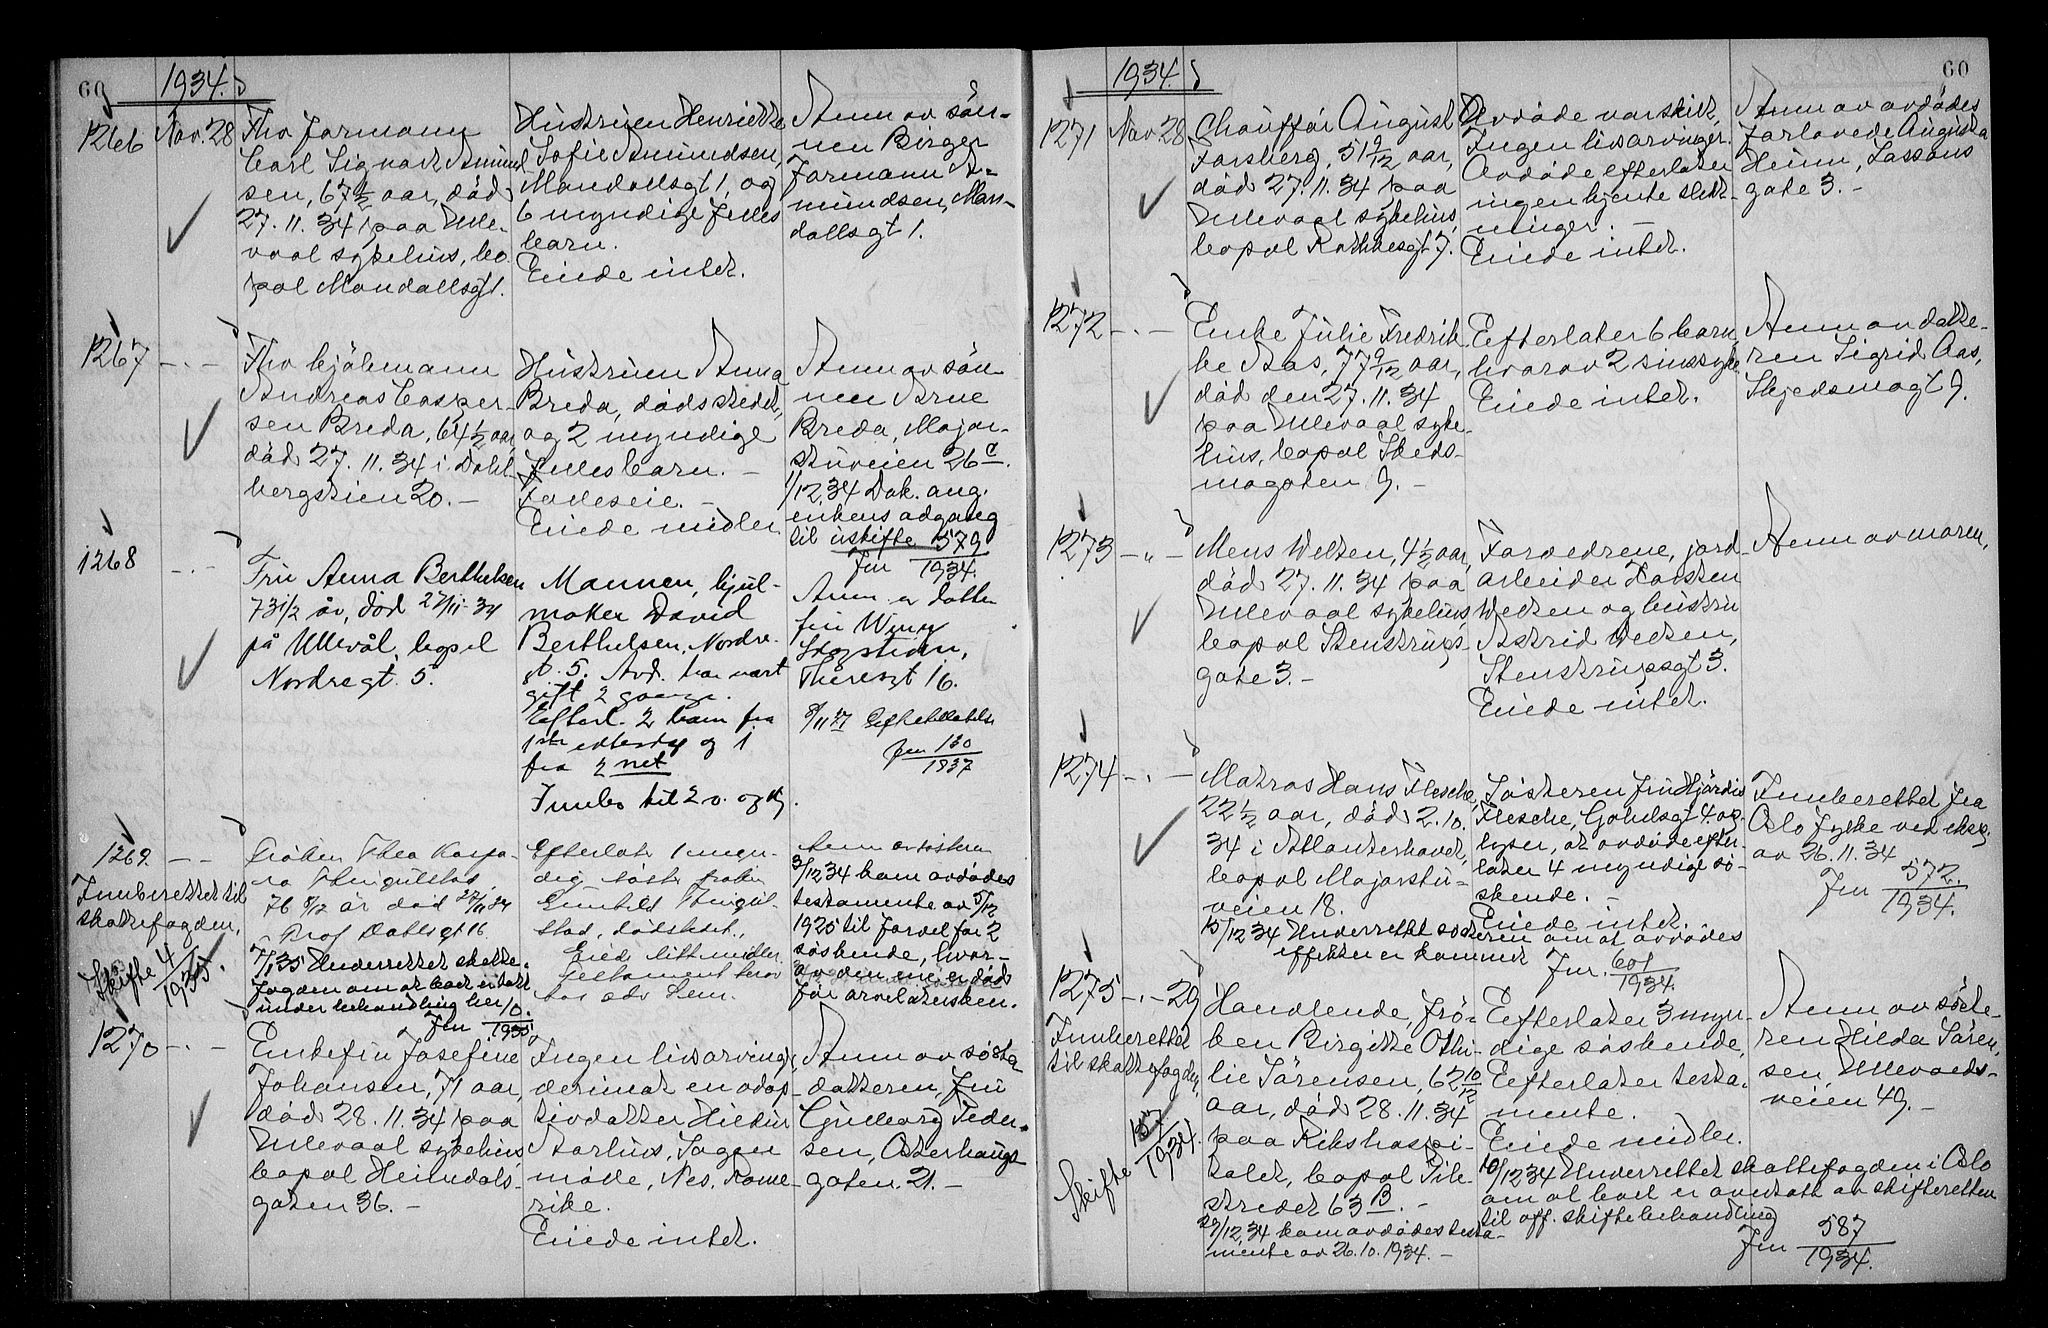 60
1934.
1266
Nov. 28
Fhv formann
Carl Sigvart Amund
sen, 67½ aar, död
27.11.34 paa Ulle-
vaal sykehus, bo
pæl Mandallsgt 1.
Hustruen Henriette
Sofie Amundsen,
Mandallsgt 1, og
6 myndige felles
barn.
Eiede intet.
Anm av sön-
nen Birger
Formann A-
mundsen, Man-
dallsgt 1.
1267
Fhv kjöbmann
Andreas Casper-
sen Breda, 64½ aar
död 27.11.34 i Dahl
bergstien 20. -
Hustruen Anna
Breda, dödsstedet,
og 2 myndige
felles barn. -
Felleseie. -
Eiede midler
Anm av sön-
nen Arne
Breda, Major-
stuveien 26 c.
1/12.34 Dok. ang.
enkens adgang
til uskifte 579
Jnr 1934.
1268
Fru Anna Berthelsen
73 1/2 år, død 27/11-34
på Ullevål, bopel
Nordregt. 5.
Mannen, hjul-
maker David
Berthelsen, Nordre-
gt. 5. Avd. har vært
gift 2 gange.
Efterl. 2 barn fra
1ste ekteskap og 1
fra 2 net
Innb. til 2 v. og
Anm. er datter
fru Winy
Theresgt 16.
Jnr 130
1937
1269.
Innberettet til
skattefogden.
Skifte 4
1935.
Frøken Thea Kaspa-
ra Thingulstad
76 8/12 år død 27/11 34
Prof Dahlsgt 16
7/1 35 Underrettet skatte-
fogden om at boet er tatt
under behandling her
Jnr 10.
1935
Efterlater 1 myn-
dig søster frøken
Gunhild Thingul-
stad, dødsstedet.
Eied litt midler.
Testament hos
Anm av søsteren
3/12 34 kom avdödes
testamente av 5/12
1925 til fordel for 2
söskende, hvor-
av den ene er död
för arvelatersken.
1270
Enkefru Josefine
Johansen, 71 aar,
död 28.11.34 paa
Ullevaal sykehus,
bopæl Heimdals-
gaten 36. -
Ingen livsarving,
derimot en adop
tivdatter Hildur
Aarhus, Jogen
möde, Nes, Rome-
rike.
Eiede intet.
Anm av søster
datteren, fru
Gudborg Peder-
sen, Osterhaugs
gaten 21. -
60
1934.
1271
Nov 28
Chauffør August
Forsberg, 51 9/12 aar,
död 27.11.34 paa
Ullevaal sykehus,
bopæl Rathkesgt 7.
Avdöde var skilt,
Ingen livsarvinger.
Avdöde efterlater
ingen kjente slekt-
ninger. -
Eiede intet.
Anm av avdödes
forlovede Augusta
Heim, Lassons
gate 3. -
1272
Enke Julie Fredrik
ke Aas, 77 9/12 aar,
död den 27.11.34
paa Ullevaal syke-
hus, bopæl Skeds-
mogaten 9. -
Efterlater 6 barn
hvorav 2 sinssyke.
Eiede intet.
Anm av datte-
ren Sigrid Aas,
Skjedsmogt 9.
1273
Mens Wetten, 4½ aar,
död 27.11.34 paa
Ullevaal sykehus,
bopæl Stenstrups
gate 3. -
Foreldrene, jord-
arbeider Karsten
Wetten og hustru
Astrid Wetten,
Stenstrupsgt 3.
Eiede intet.
Anm av moren.
1274
Matros Hans Flesche,
22½ aar, död 2.10.
34 i Atlanterhavet,
bopæl Majorstu-
veien 18.
Søsteren fru Hjördis
Flesche, Gabelsgt 4. op
lyser, at avdöde efter-
later 4 myndige sö-
skende. -
Eiede intet.
15/12 34 Underrettet søsteren om at avdödes
effekter er kommet
Jnr. 601
1934.
Innberettet fra
Oslo fylke ved eksp.
av 26.11.34
Jnr 572.
1934.
1275
29
Innberettet
til skattefogden.
Skifte 157
1934.
Handlende, frö-
ken Birgitte Othi-
lie Sörensen, 62 10/12
aar, död 28.11.34
paa Rikshospi-
talet, bopæl Pile-
stredet 63 B. -
29/12.34 kom avdödes testa-
mente av 26.10.1934. -
Efterlater 3 myn-
dige söskende,
Efterlater testa-
mente.
Eiede midler.
10/12 34 Underrettet skattefogden i Oslo
om at boet er overtatt av skifteretten
til off. skiftebehandling
Jnr 587
1934.
Anm av söste-
ren Hilda Sören-
sen, Ullevaals-
veien 49. -